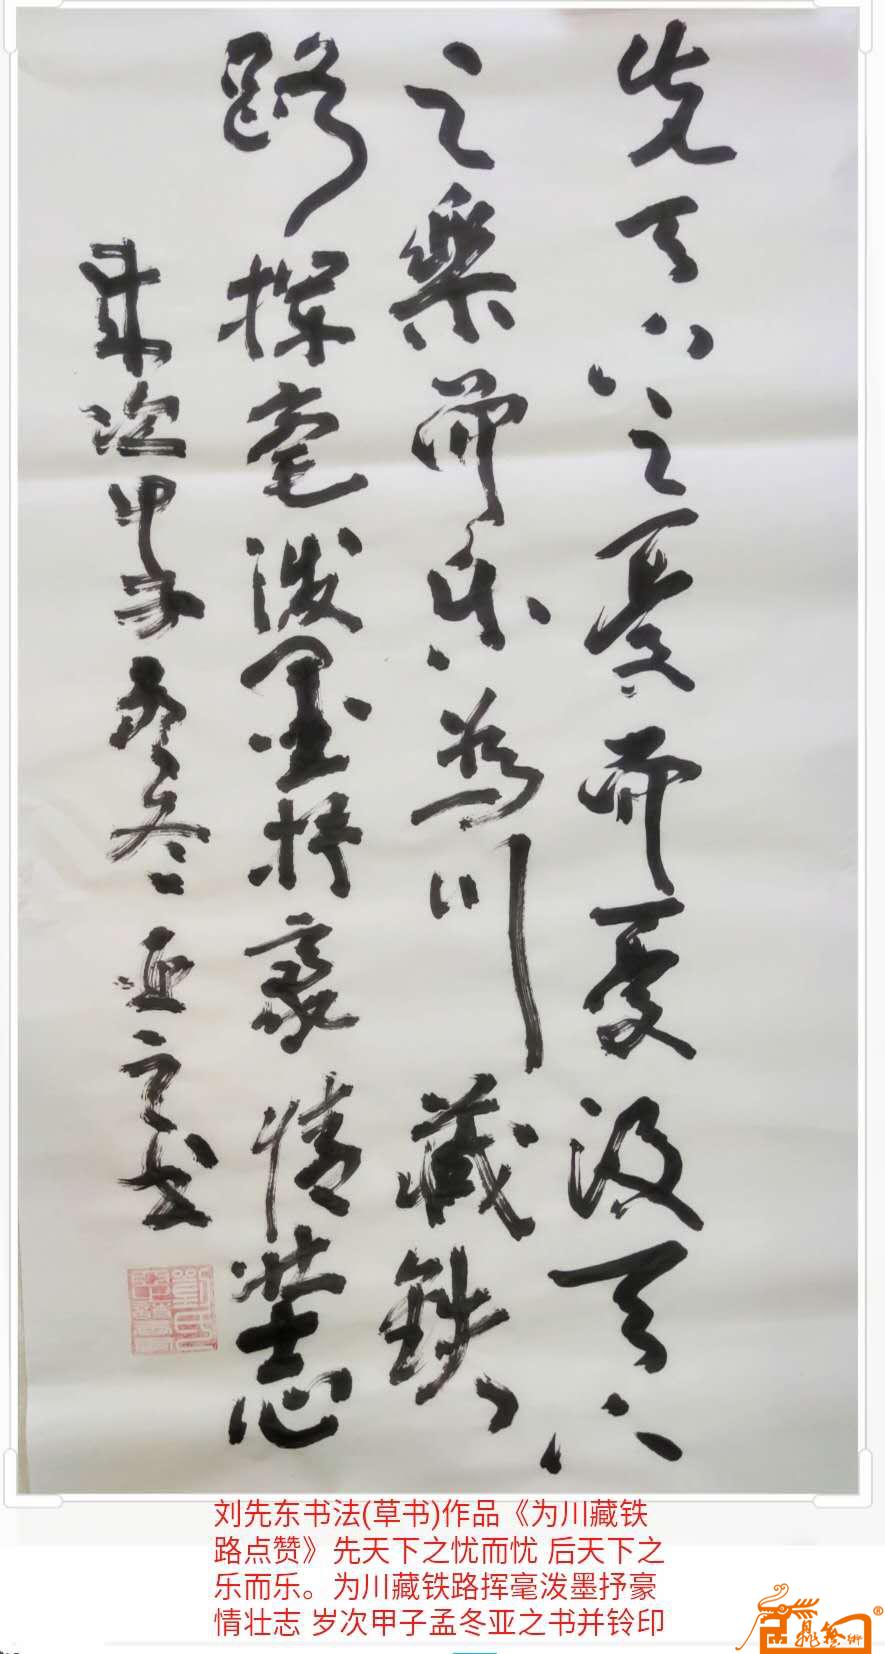 先天下之憂而憂後天下
之樂而乐為川藏鉄
路揮毫泼墨抒豪情壮志
岁次甲子孟冬亚之书
刘先东书法(草书)作品《为川藏铁
路点赞》先天下之忧而忧 后天下之
乐而乐。为川藏铁路挥毫泼墨抒豪
情壮志 岁次甲子孟冬亚之书并铃印